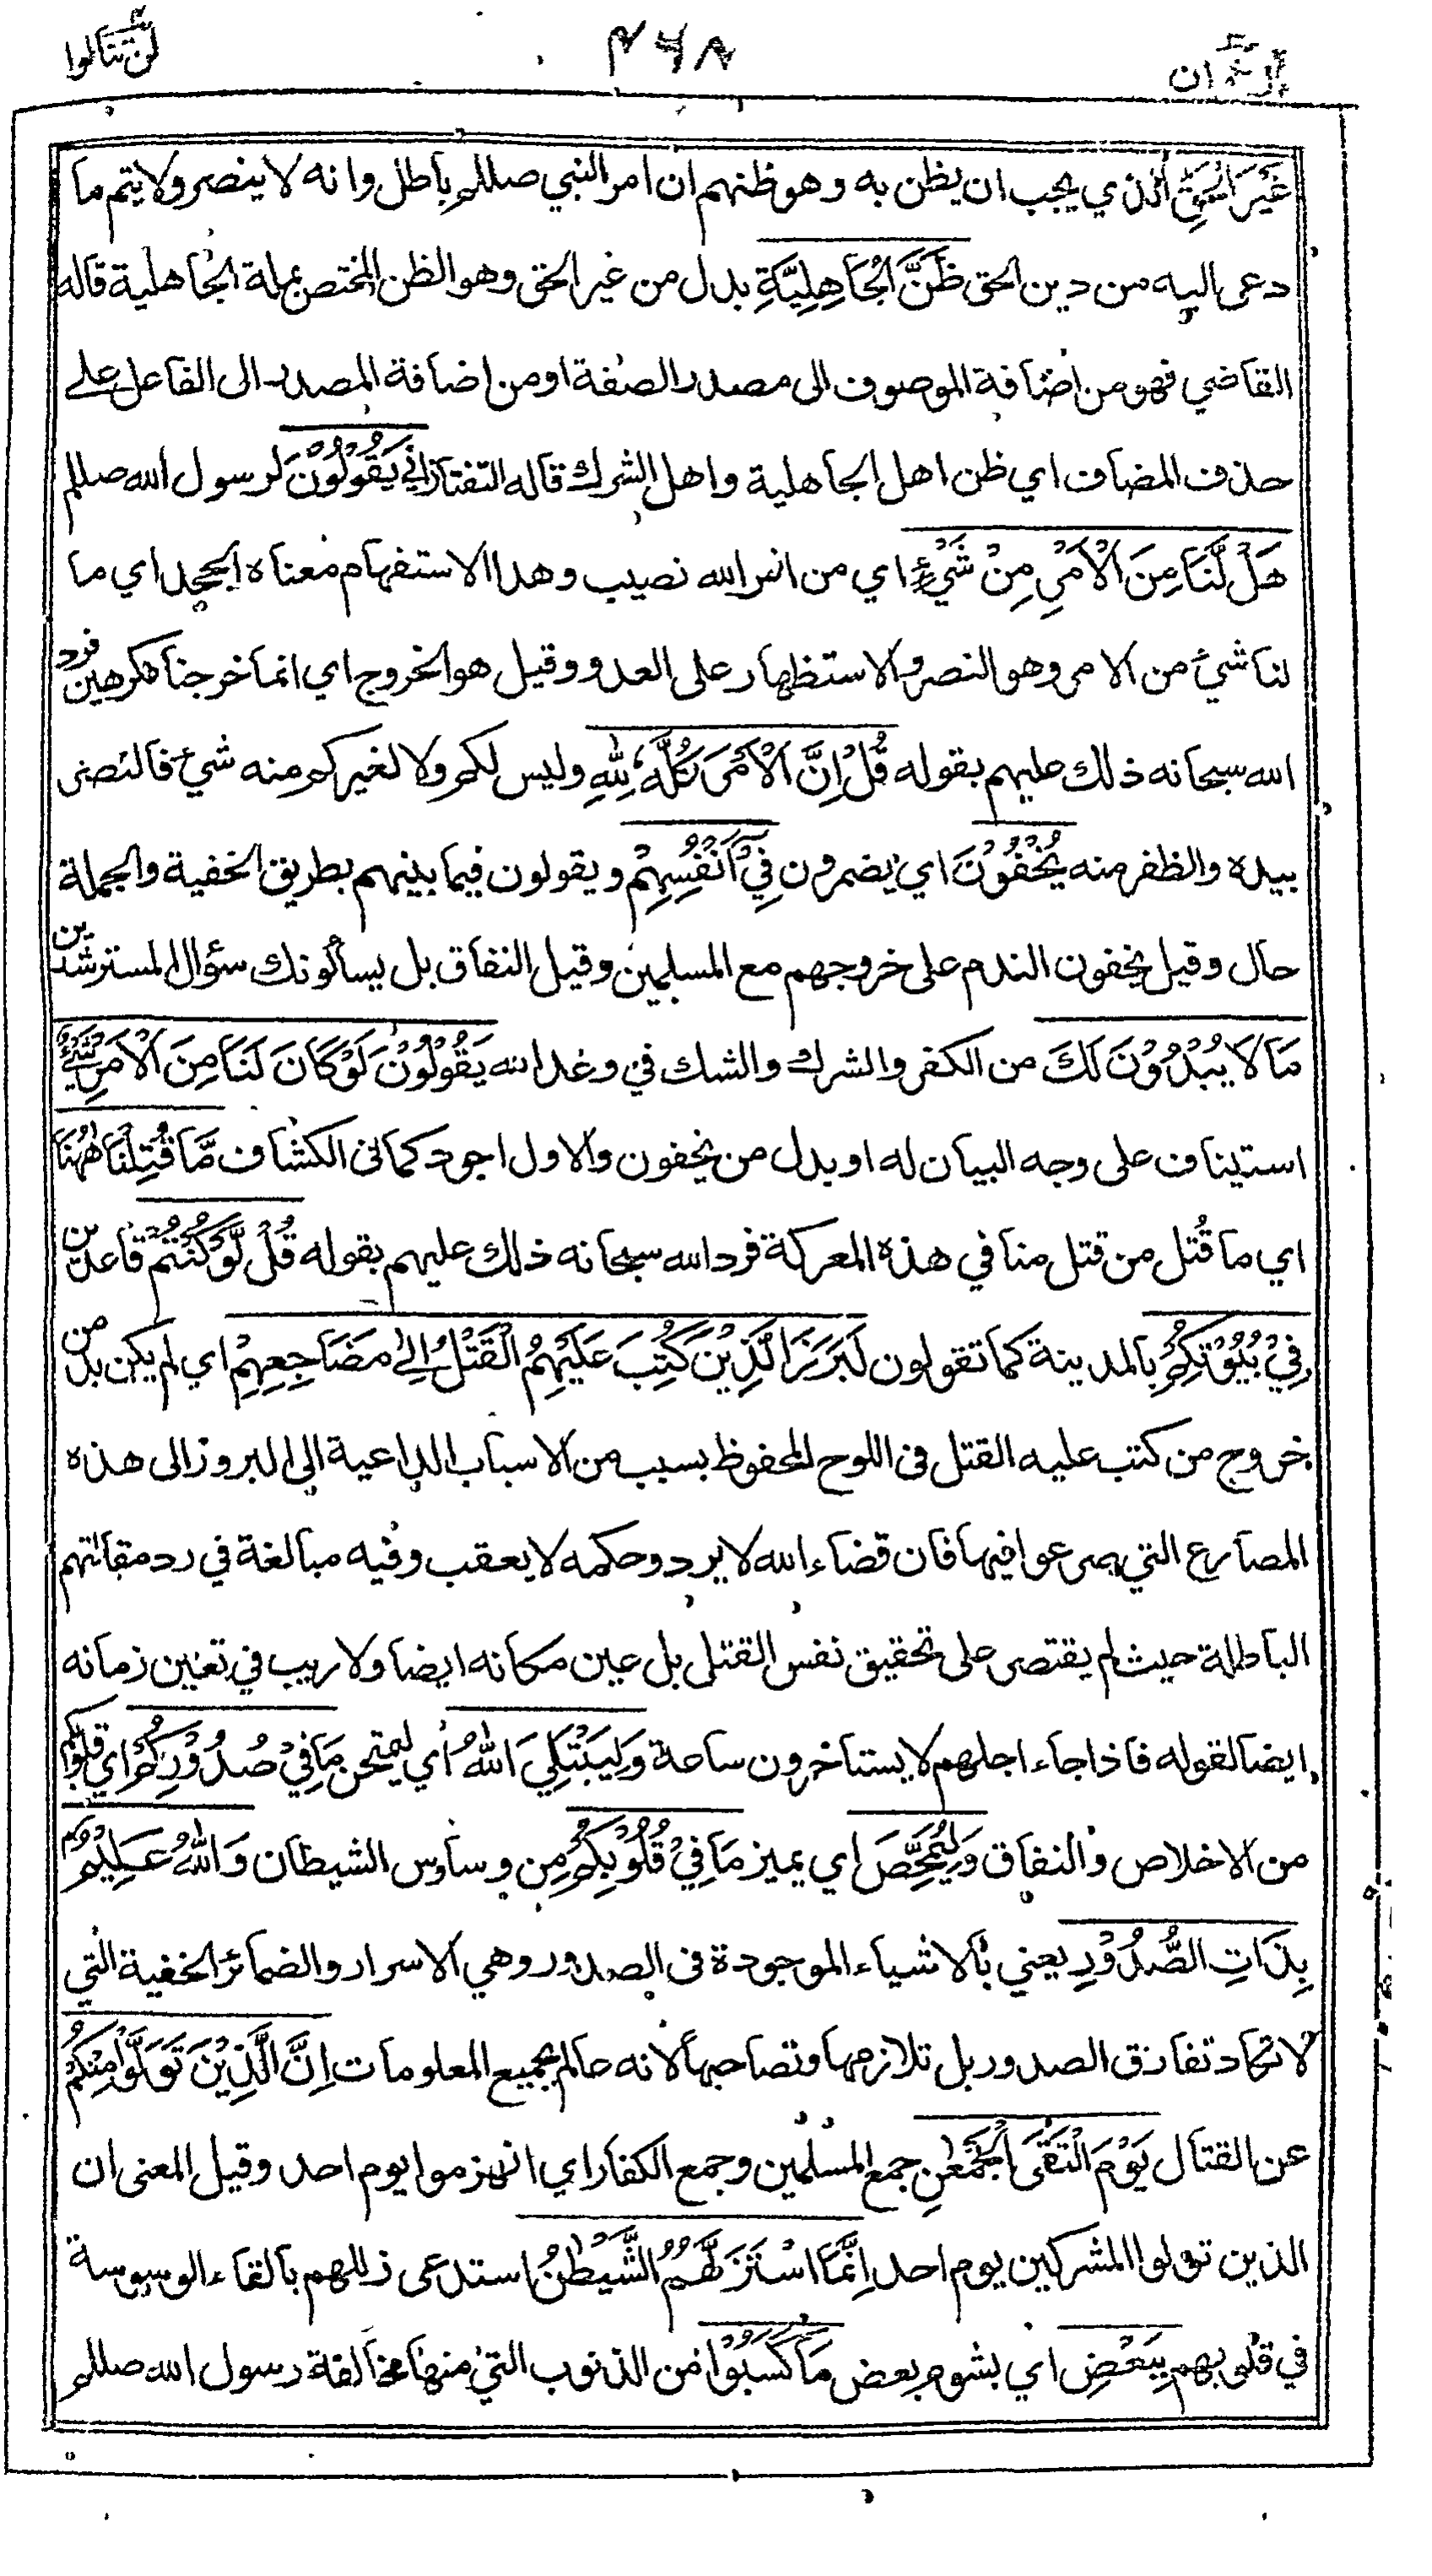 لن تنالوا
٤٦٨
آل عمران
غَيْرَ الْحَقِّ الذي يجب ان يظن به وهو ظنهم ان امر النبي صللم باطل وانه لا ينصر ولا يتم ما
دعى اليه من دين الحق ظَنَّ الْجَاهِلِيَّةِ بدل من غير الحق وهو الظن المختص بملة الجاهلية قاله
القاضي فهو من اضافة الموصوف الى مصدر الصفة او من اضافة المصدر الى الفاعل على
حذف المضاف اي ظن اهل الجاهلية واهل الشرك قاله التفتازاني يَقُولُوْنَ لرسول الله صللم
هَلْ لَّنَا مِنَ الْاَمْرِ مِنْ شَيْءٍ اي من امر الله نصيب وهذا الاستفهام معناه الجحد اي ما
لنا شئ من الامر وهو النصر والاستظهار على العدو وقيل هو الخروج اي انما خرجنا مكرهين فرد
الله سبحانه ذلك عليهم بقوله قُلْ اِنَّ الْاَمْرَ كُلَّهٗ لِلّٰهِ وليس لكم ولا لغيركم منه شئ فالنصر
بيده والظفر منه يُخْفُوْنَ اي يضمرون فِيْ اَنْفُسِهِمْ ويقولون فيما بينهم بطريق الخفية والجملة
حال وقيل يخفون الندم على خروجهم مع المسلمين وقيل النفاق بل يسألونك سؤال المسترشدين
مَا لَا يُبْدُوْنَ لَكَ من الكفر والشرك والشك في وعد الله يَقُوْلُوْنَ لَوْ كَانَ لَنَا مِنَ الْاَمْرِ شَيْءٌ
استيناف على وجه البيان له او بدل من يخفون والاول اجود كما في الكشاف مَّا قُتِلْنَا هٰهُنَا
اي ما قُتل من قتل منا في هذه المعركة فرد الله سبحانه ذلك عليهم بقوله قُلْ لَّوْ كُنْتُمْ قاعدين
فِيْ بُيُوْتِكُمْ بالمدينة كما تقولون لَبَرَزَ الَّذِيْنَ كُتِبَ عَلَيْهِمُ الْقَتْلُ اِلٰى مَضَاجِعِهِمْ اي لم يكن بد من
خروج من كتب عليه القتل في اللوح المحفوظ بسبب من الاسباب الداعية الى البروز الى هذه
المصارع التي صرعوا فيها فان قضاء الله لا يرد وحكمه لا يعقب وفيه مبالغة في رد مقالتهم
الباطلة حيث لم يقتصر على تحقيق نفس القتل بل عين مكانه ايضا ولا ريب في تعيين زمانه
ايضا لقوله فاذا جاء اجلهم لا يستاخرون ساعة وَلِيَبْتَلِيَ اللّٰهُ أي ليمتحن مَا فِيْ صُدُوْرِكُمْ اي قلوبكم
من الاخلاص والنفاق وَلِيُمَحِّصَ اي يميز مَا فِيْ قُلُوْبِكُمْ مِن وساوس الشيطان وَاللّٰهُ عَلِيْمٌ
بِذَاتِ الصُّدُوْرِ يعني بالاشياء الموجودة في الصدور وهي الاسرار والضمائر الخفية التي
لا تكاد تفارق الصدور بل تلازمها وتصاحبها لانه عالم بجميع المعلومات اِنَّ الَّذِيْنَ تَوَلَّوْا مِنْكُمْ
عن القتال يَوْمَ الْتَقَى الْجَمْعٰنِ جمع المسلمين وجمع الكفار اي انهزموا يوم احد وقيل المعنى ان
الذين تولوا المشركين يوم احد اِنَّمَا اسْتَزَلَّهُمُ الشَّيْطٰنُ استدعى زللهم بالقاء الوسوسة
في قلوبهم بِبَعْضِ اي بشوم بعض مَا كَسَبُوْا من الذنوب التي منها مخالفة رسول الله صللم